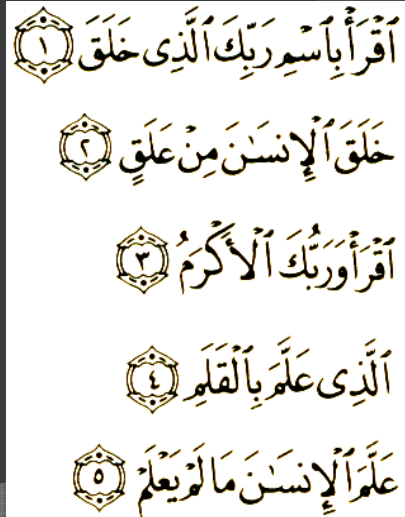 ٱقۡرَأۡ بِٱسۡمِ رَبِّكَ ٱلَّذِى خَلَقَ ١
خَلَقَ ٱلۡإِنسَـٰنَ مِنۡ عَلَقٍ ٢
ٱقۡرَأۡ وَرَبُّكَ ٱلۡأَكۡرَمُ ٣
ٱلَّذِى عَلَّمَ بِٱلۡقَلَمِ ٤
عَلَّمَ ٱلۡإِنسَـٰنَ مَا لَمۡ يَعۡلَمۡ ٥